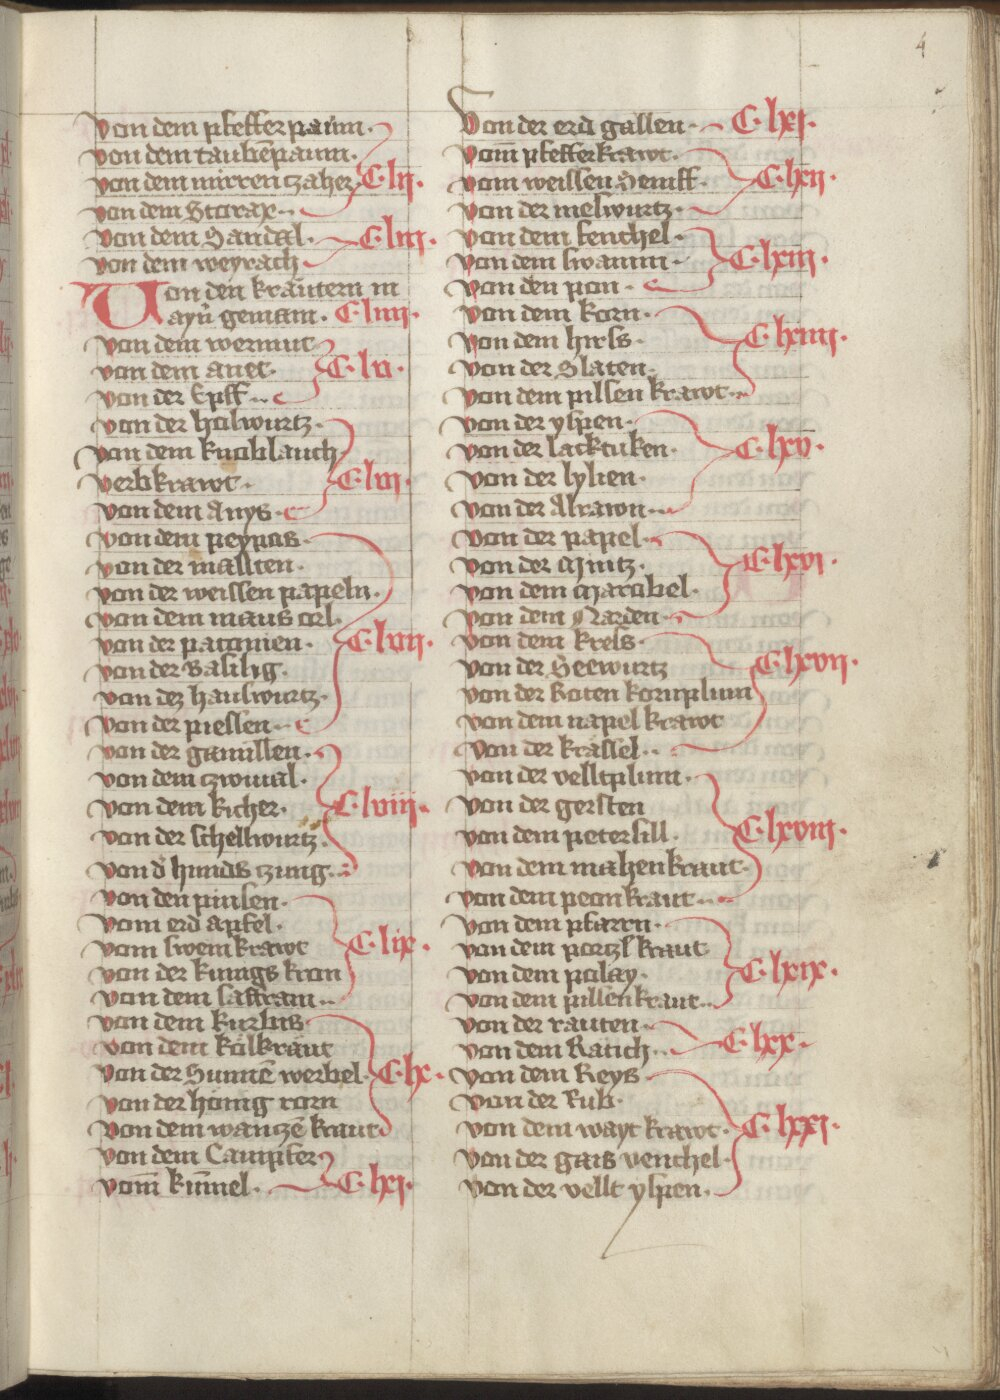 4
von dem pfeffer paum.
von dem taubēpaum.
von dem mirren czaher C·lii·
von dem Storax..
von dem Sandal. C·liii·
von dem weyrach
Von den krautern in
ayn̄ gemain. C·liiii·
von dem wermut
von dem anet. C·lv·
von der Epff..
von der holwurtz.
von dem knoblauch
verbkrawt. C·lvi·
von dem Anys.
von dem peypas
von der malsten.
von der weissen papeln.
von dem maus orl.
von der patonien. C·lvii·
von der Basilig.
von der hauswurtz.
von der piessen.
von der gamillen.
von dem czwiual.
von dem kicher. C·lviii·
von der schelwurtz.
von d̄ hunds czung.
von den pinsen.
vom erd apfel.
vom swein krawt C·lix·
von der kunigs kron
von dem saffran..
von dem kurbis
von dem kölkraut
von der Sunnē werbel C·lx·
von der honig rorn
von dem wanczē kraut
von dem Campfer
vom̄ kūmel. C·lxi·
Von der erd gallen. C·lxi·
vom̄ pfefferkrawt.
vom weissen Seniff. C·lxii·
von der nieswurtz.
von dem fenchel.
von dem swamm. C·lxiii·
von den pon.
von dem korn.
von dem hirss. C·lxiiii·
von der Slaten.
von dem pillsen krawt..
von der yspen.
von der lacktuken. C·lxv·
von der lylien.
von der Alrawn..
von der papel.
von der Mintz. C·lxvi·
von dem Marobel.
von dem Narden.
von dem kress.
von der Seewurtz C·lxvii·
von der Roten kornplum
von dem napel krawt
von der krassel..
von der velltplum.
von der gersten
von dem petersill. C·lxviii·
von dem mahenkraut.
von dem peon kraut..
von dem pfarrn.
von dem portzl kraut
von dem polay. C·lxix·
von dem pillen kraut..
von der rauten.
von dem Ratich.. C·lxx·
von dem Reys
von der Rub.
von dem wayt krawt. C·lxxi·
von der gais venchel.
von der vellt yspen.